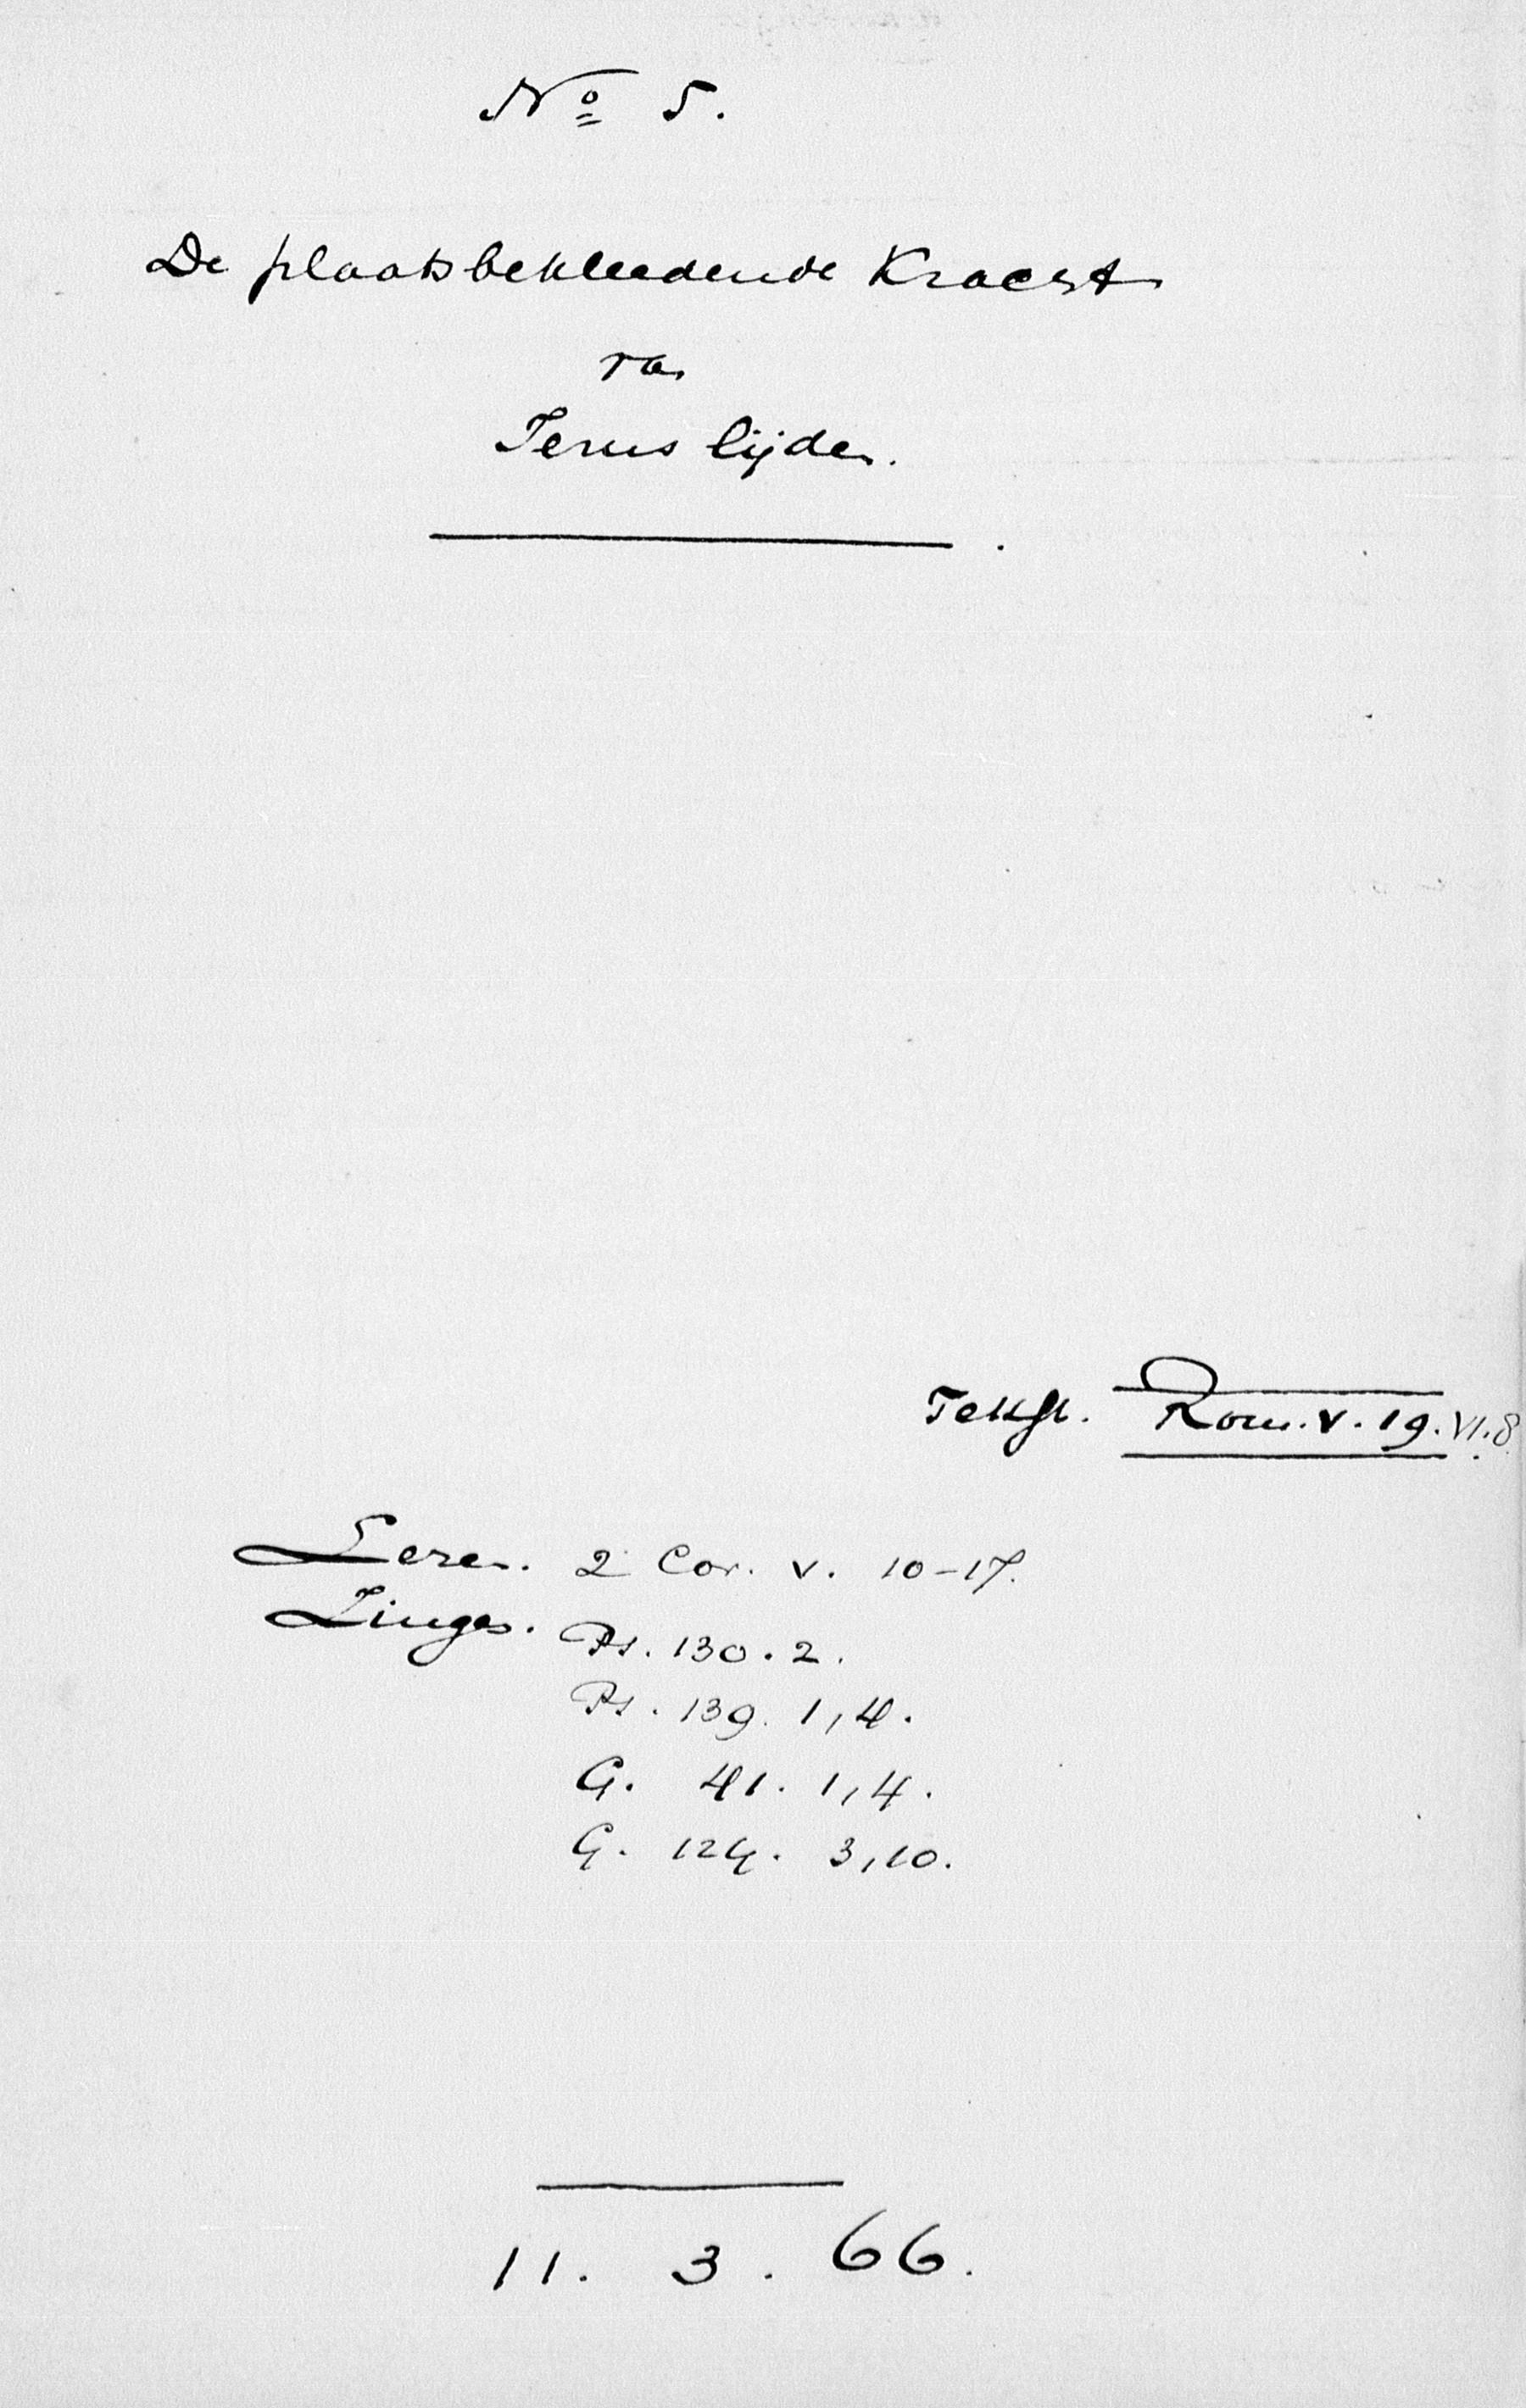 No 5.
De plaatsbekleedende Kracht
van
Jezus lijden.
Tekst. Rom. V. 19. VI. 8.
Lezen. 2 Cor. V. 10-17.
Zingen.
Ps. 130. 2.
Ps. 139. 1, 4.
G. 41. 1, 4.
G. 124. 3, 10.
11. 3. 66.